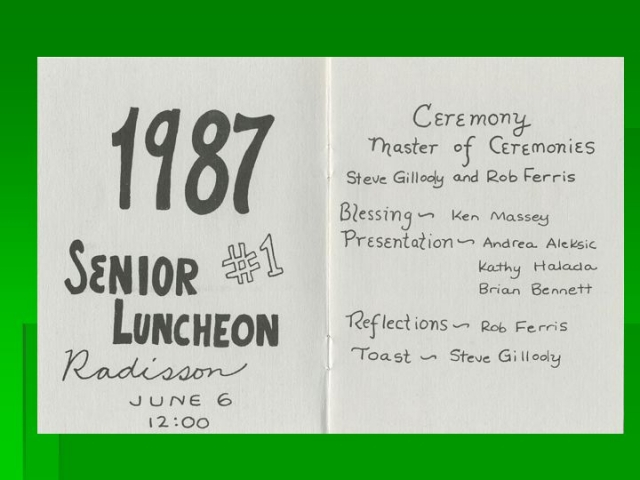 1987
SENIOR #1
LUNCHEON
Radisson
JUNE 6
12:00
Ceremony
Master of Ceremonies
Steve Gillody and Rob Ferris
Blessing ~ Ken Massey
Presentation ~ Andrea Aleksic
Kathy Halada
Brian Bennett
Reflections ~ Rob Ferris
Toast ~ Steve Gillody